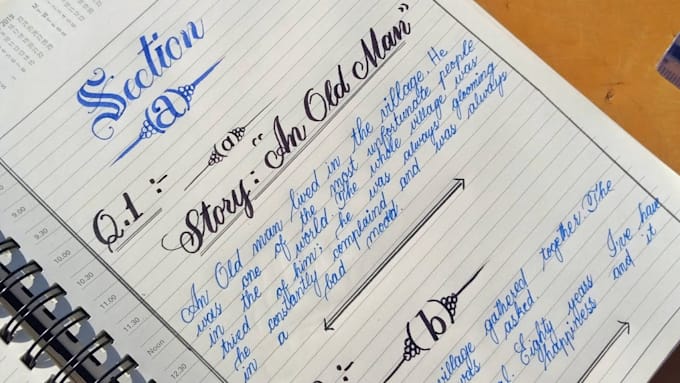 2019
Section
(a)
Q.1 :- (a)
Story: "An Old Man"
An Old man lived in the village. He
was one of the most unfortunate people
in the world. The whole village was
tried of him; he was always glooming
he constantly complaind and was always
in a bad mood.
(b)
village gathered together. The
asked.
Eighty years I've have
happiness and it
9.00
9.30
10.00
10.30
11.00
11.30
Noon
12.30